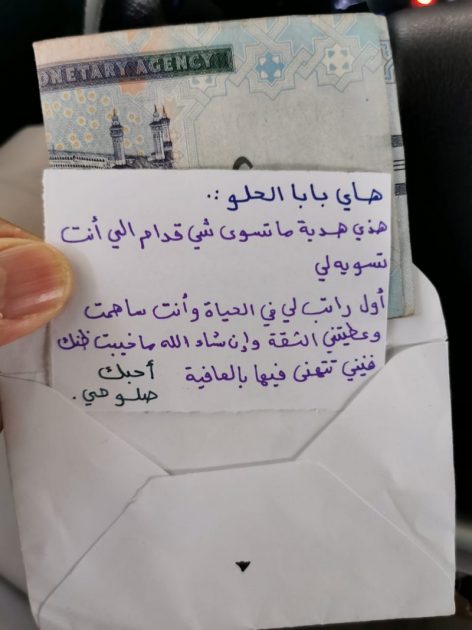 ONETARY AGENCY
هاي بابا الحلو :.
هذي هدية ماتسوى شي قدام الي أنت
تسويه لي
أول راتب لي في الحياة وأنت ساهمت
وعطيتني الثقة وإن شاء الله ماخيبت ظنك
فيني تتهنى فيها بالعافية
أحبك